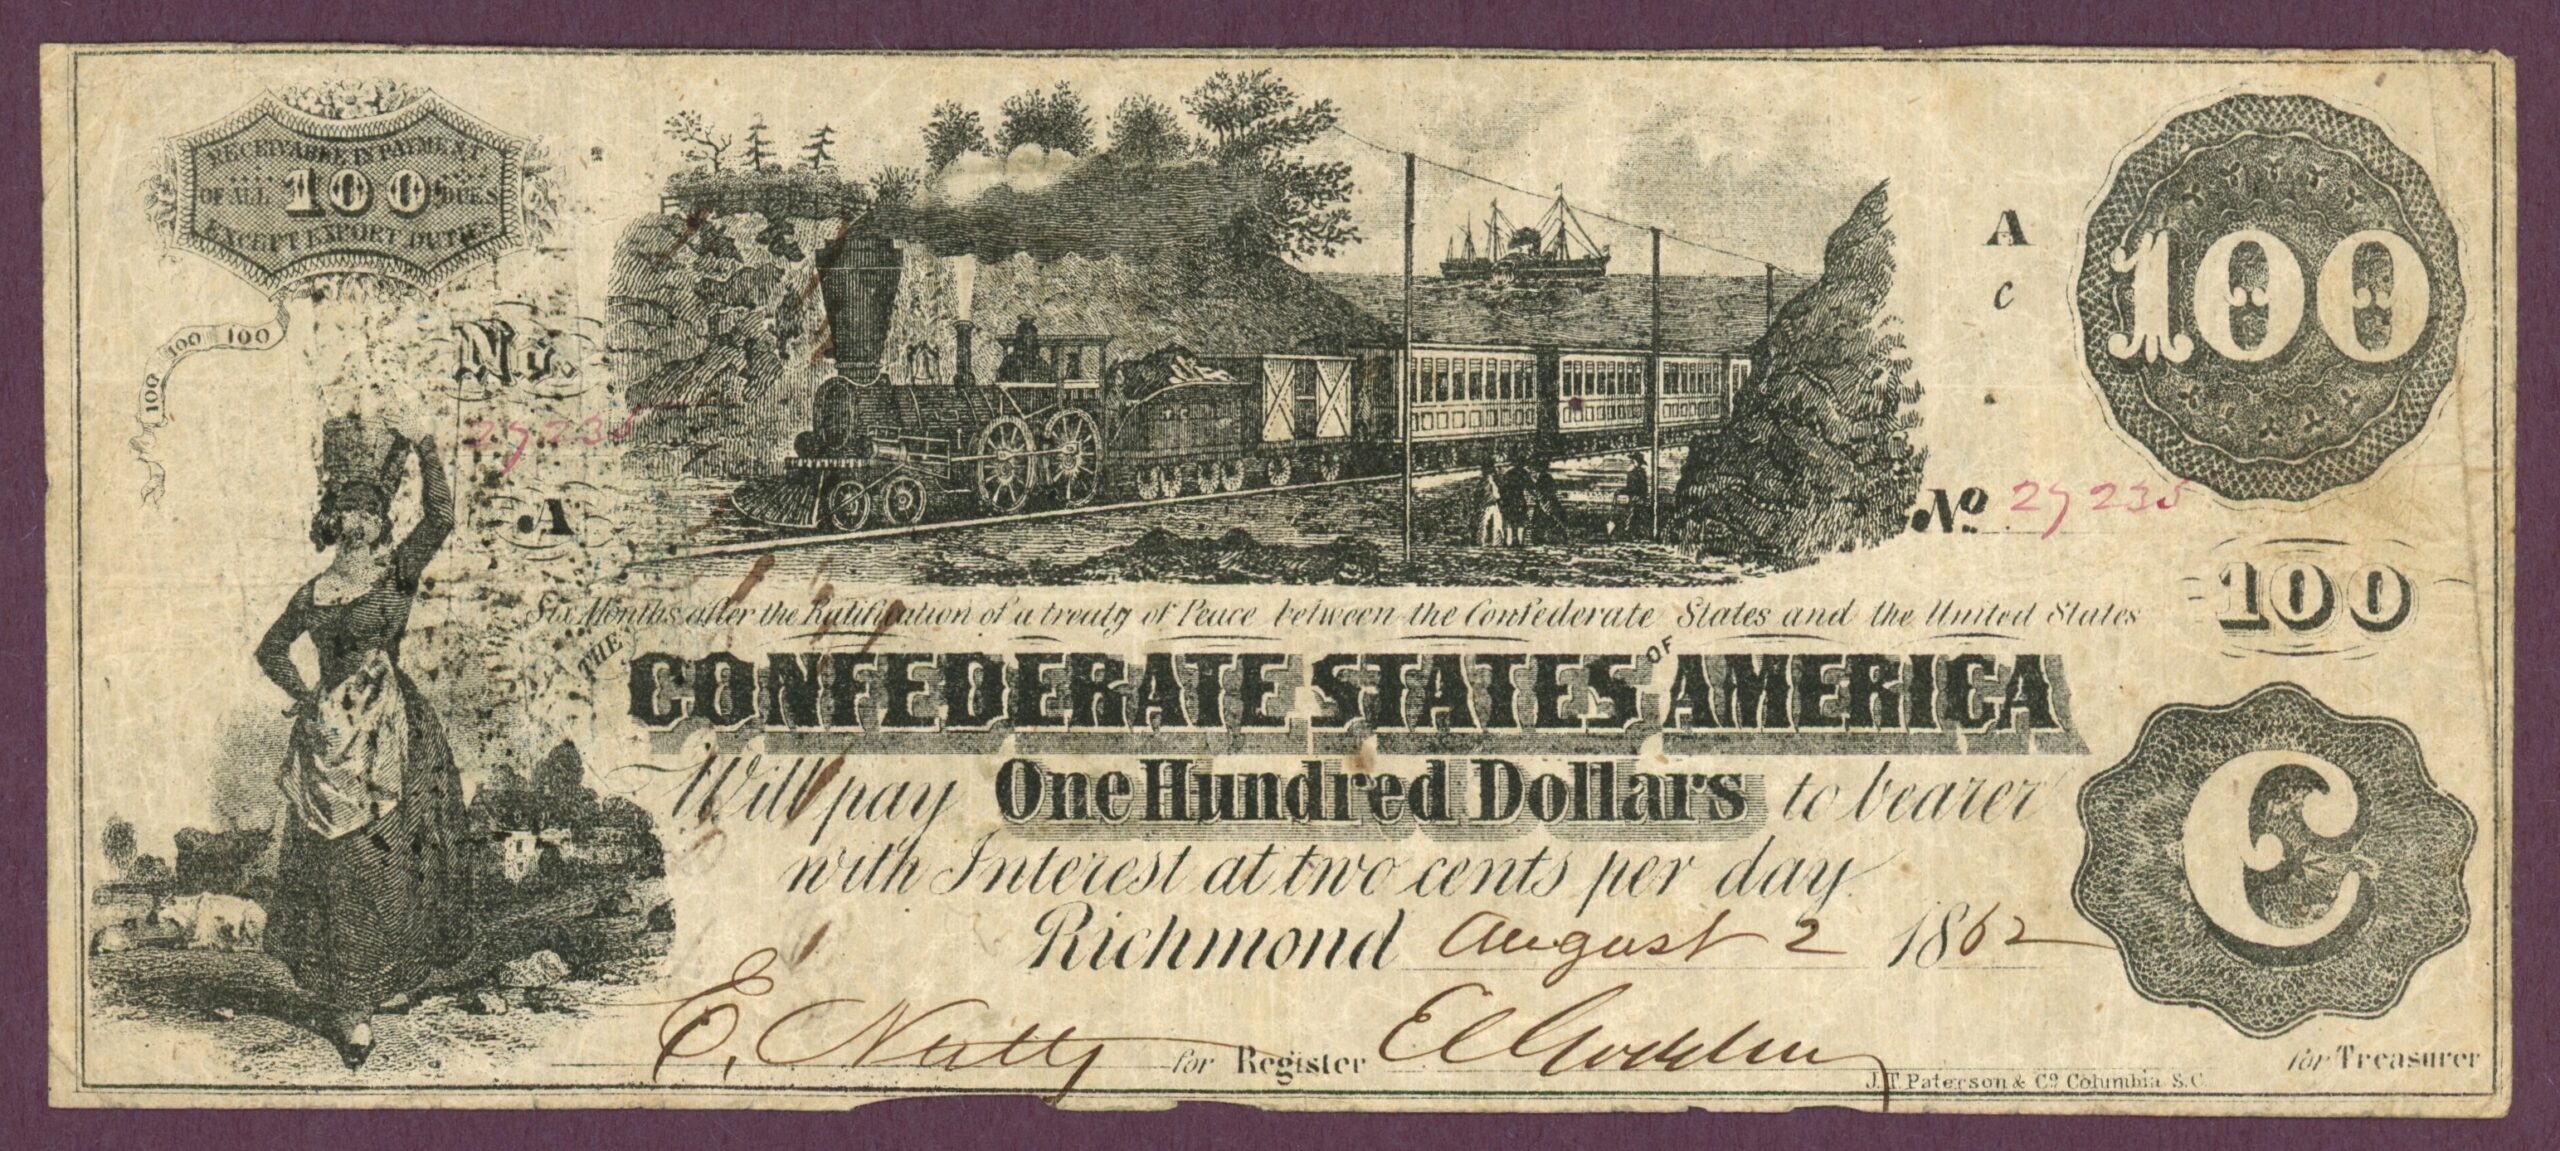 RECEIVABLE IN PAYMENT
OF ALL 100 DUES
EXCEPT EXPORT DUTIES
100 100 100
No.
27235
A
A
C
100
No 27235
100
Six Months after the Ratification of a treaty of Peace between the Confederate States and the United States
THE CONFEDERATE STATES OF AMERICA
Will pay One Hundred Dollars to bearer
with Interest at two cents per day
Richmond August 2 1862
C
E. Nutty for Register for Treasurer
J. T. Paterson & Co Columbia S.C.